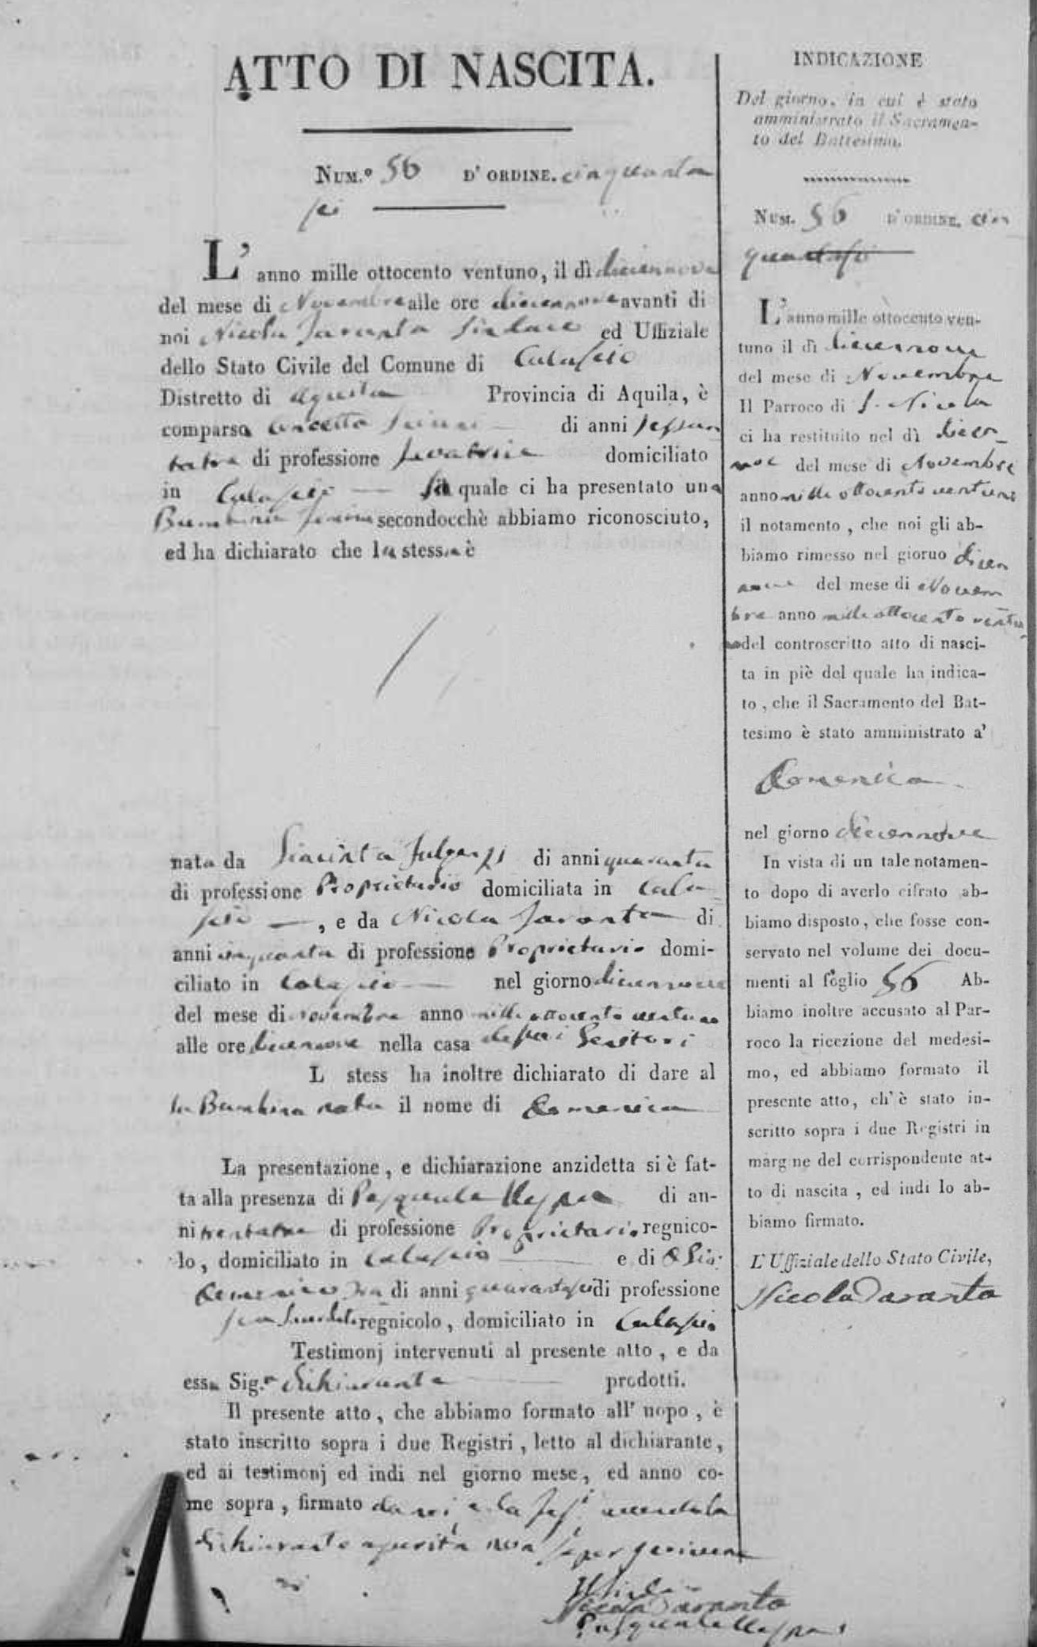 ATTO DI NASCITA.
Num.º 56 D' ORDINE. cinquanta
sei
L' anno mille ottocento ventuno, il dì diecennove
del mese di Novembre alle ore diecennove avanti di
noi Nicola Taranta Sindaco ed Uffiziale
dello Stato Civile del Comune di Calascio
Distretto di Aquila Provincia di Aquila, è
comparsa Concetta di anni sessan
tatre di professione Levatrice domiciliato
in Calascio — La quale ci ha presentato una
Bambina secondocchè abbiamo riconosciuto,
ed ha dichiarato che la stessa è
nata da Giacinta Fulgenzi di anni quaranta
di professione Proprietario domiciliata in Cala
scio —, e da Nicola Taranta di
anni cinquanta di professione Proprietario domi-
ciliato in Calascio — nel giorno diecennove
del mese di novembre anno mille ottocento ventuno
alle ore diecennove nella casa de suoi Genitori
L stess ha inoltre dichiarato di dare al
la Bambina nata il nome di Domenica
La presentazione, e dichiarazione anzidetta si è fat-
ta alla presenza di Pasquale di an-
ni trentatre di professione Proprietario regnico-
lo, domiciliato in Calascio — e di
Domenico di anni quarantasei di professione
regnicolo, domiciliato in Calascio
Testimonj intervenuti al presente atto, e da
essa Sig.ra Dichiarante — prodotti.
Il presente atto, che abbiamo formato all' uopo, è
stato inscritto sopra i due Registri, letto al dichiarante,
ed ai testimonj ed indi nel giorno mese, ed anno co-
me sopra, firmato da noi, e da
dichiarante asserito non saper scrivere
Il Sindaco
Nicola Taranta
Pasquale
INDICAZIONE
Del giorno, in cui è stato
amministrato il Sacramen-
to del Battesimo.
Num. 56 D'ORDINE. cin
quantasei
L' anno mille ottocento ven-
tuno il dì diecennove
del mese di Novembre
Il Parroco di S. Nicola
ci ha restituito nel dì diecen
nove del mese di Novembre
anno mille ottocento ventuno
il notamento, che noi gli ab-
biamo rimesso nel giorno diecen
nove del mese di Novem
bre anno mille ottocento ventu
no del controscritto atto di nasci-
ta in piè del quale ha indica-
to, che il Sacramento del Bat-
tesimo è stato amministrato a'
Domenica
nel giorno diecennove
In vista di un tale notamen-
to dopo di averlo cifrato ab-
biamo disposto, che fosse con-
servato nel volume dei docu-
menti al foglio 56 Ab-
biamo inoltre accusato al Par-
roco la ricezione del medesi-
mo, ed abbiamo formato il
presente atto, ch' è stato in-
scritto sopra i due Registri in
margine del corrispondente at-
to di nascita, ed indi lo ab-
biamo firmato.
L' Uffiziale dello Stato Civile,
Nicola Taranta